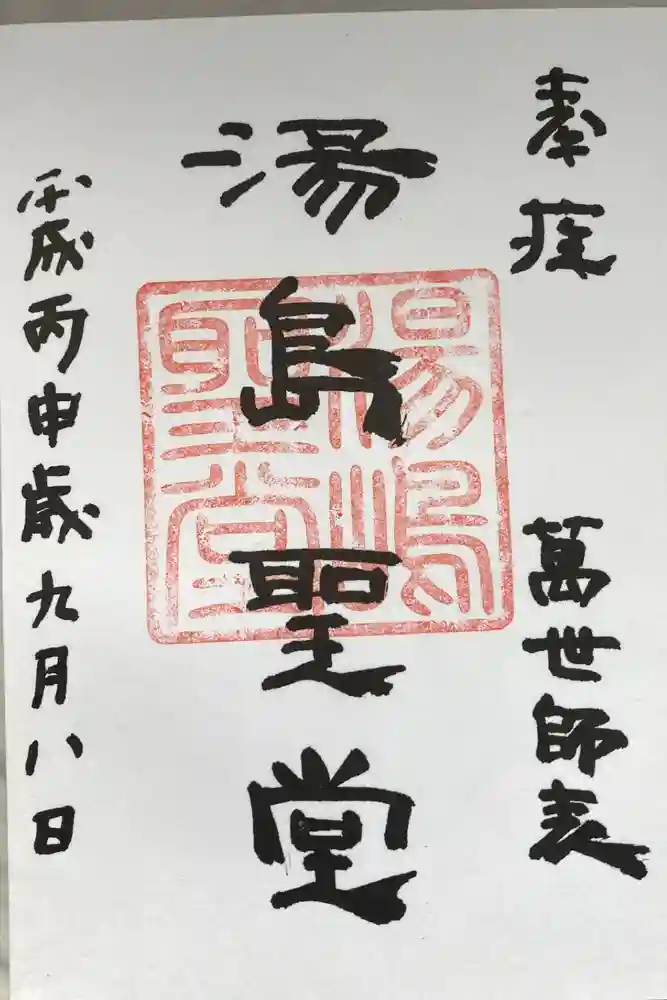 奉拝
萬世師表
湯島聖堂
湯嶋
聖堂
平成丙申歳九月八日